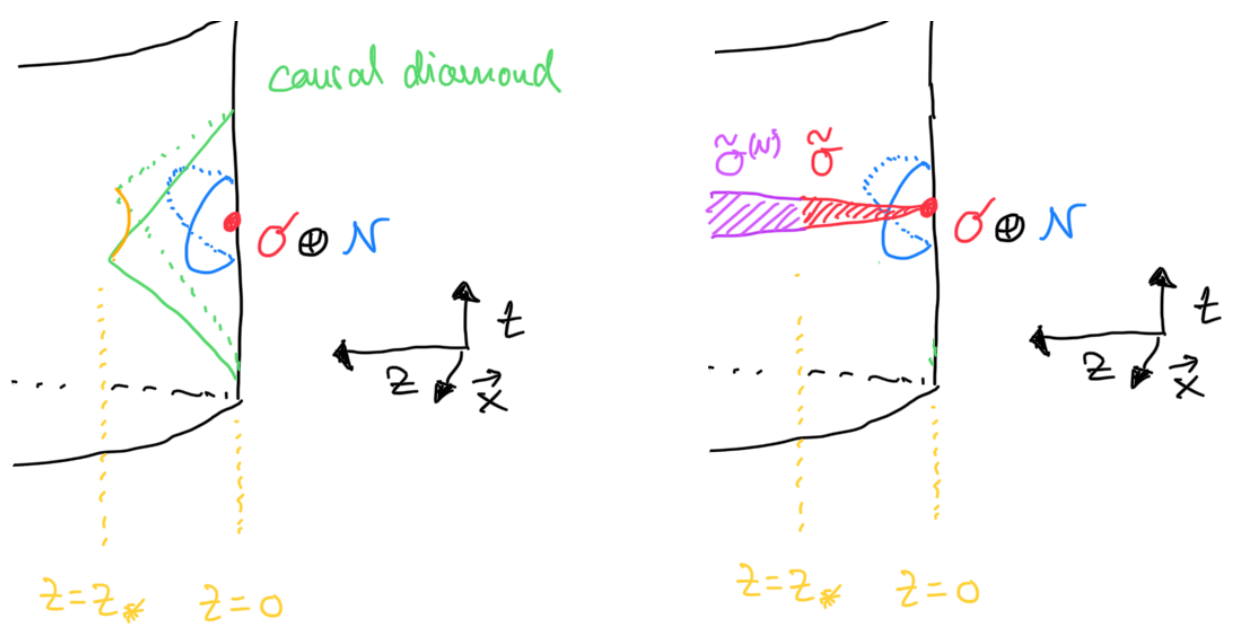 causal diamond
σ ⊕ N
t
z
x⃗
z=z* z=0
σ̃⁽ᴺ⁾ σ̃
σ ⊕ N
t
z
x⃗
z=z* z=0